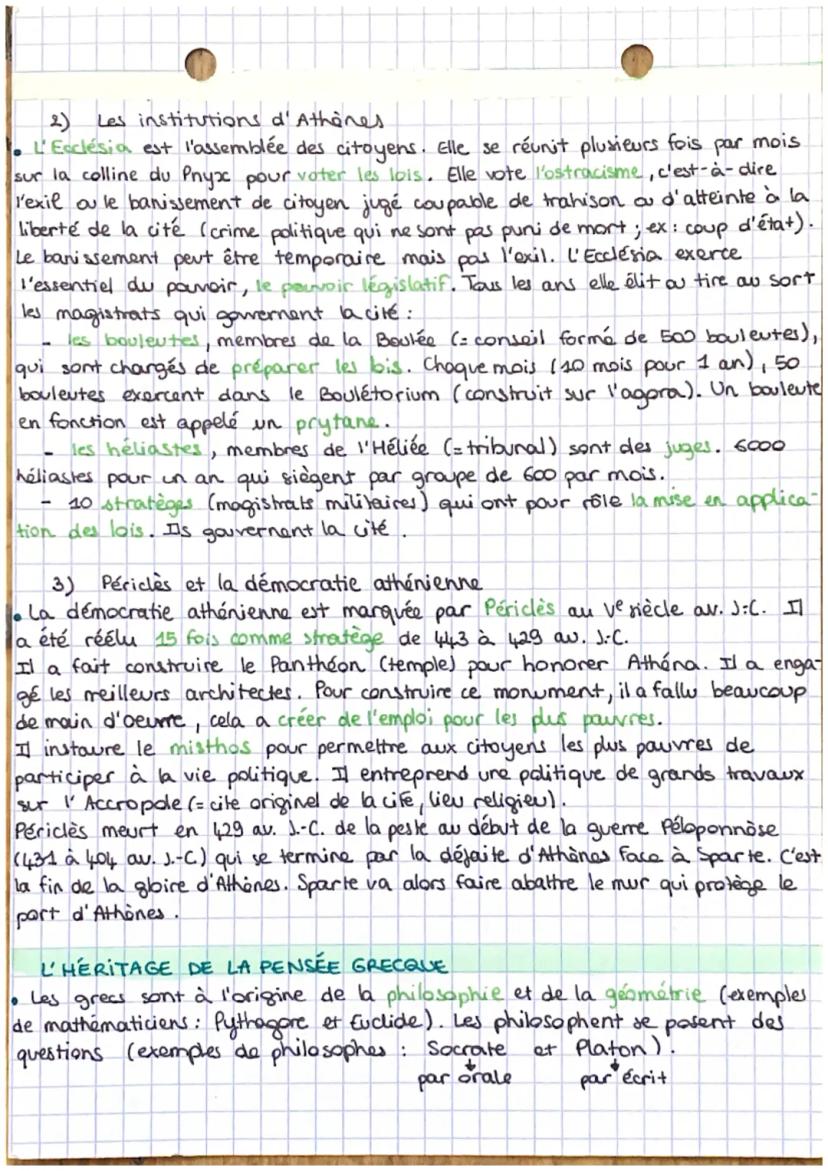 2) Les institutions d'Athènes
• L'Ecclésia est l'assemblée des citoyens. Elle se réunit plusieurs fois par mois
sur la colline du Pnyx pour voter les lois. Elle vote l'ostracisme, c'est-à-dire
l'exil ou le banissement de citoyen jugé coupable de trahison ou d'atteinte à la
liberté de la cité (crime politique qui ne sont pas puni de mort ; ex : coup d'état).
Le banissement peut être temporaire mais pas l'exil. L'Ecclésia exerce
l'essentiel du pouvoir, le pouvoir législatif. Tous les ans elle élit ou tire au sort
les magistrats qui gouvernent la cité :
- les bouleutes, membres de la Boulée (= conseil formé de 500 bouleutes),
qui sont chargés de préparer les lois. Chaque mois (10 mois pour 1 an), 50
bouleutes exercent dans le Boulétorium (construit sur l'agora). Un bouleute
en fonction est appelé un prytane.
- les héliastes, membres de l'Héliée (= tribunal) sont des juges. 6000
héliastes pour un an qui siègent par groupe de 600 par mois.
- 10 stratèges (magistrats militaires) qui ont pour rôle la mise en applica-
tion des lois. Ils gouvernent la cité.
3) Périclès et la démocratie athénienne
• La démocratie athénienne est marquée par Périclès au Ve siècle av. J.-C. Il
a été réélu 15 fois comme stratège de 443 à 429 av. J.-C.
Il a fait construire le Panthéon (temple) pour honorer Athéna. Il a enga-
gé les meilleurs architectes. Pour construire ce monument, il a fallu beaucoup
de main d'oeuvre, cela a créer de l'emploi pour les plus pauvres.
Il instaure le misthos pour permettre aux citoyens les plus pauvres de
participer à la vie politique. Il entreprend une politique de grands travaux
sur l'Accropole (= cite originel de la cité, lieu religieu).
Périclès meurt en 429 av. J.-C. de la peste au début de la guerre Péloponnèse
(431 à 404 av. J.-C) qui se termine par la défaite d'Athènes face à Sparte. C'est
la fin de la gloire d'Athènes. Sparte va alors faire abattre le mur qui protège le
port d'Athènes.
L'HÉRITAGE DE LA PENSÉE GRECQUE
• Les grecs sont à l'origine de la philosophie et de la géométrie (exemples
de mathématiciens : Pythagore et Euclide). Les philosophent se posent des
questions (exemples de philosophes : Socrate et Platon).
par orale par écrit